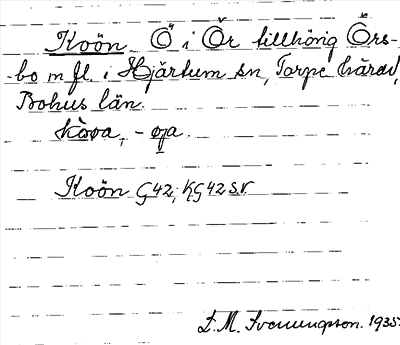 Koön Ö i Ör tillhörig Örs-
-bo m fl. i Hjärtum sn, Torpe härad,
Bohus län.
kòva, - øja.
Koön G42; KG42 sv
L. M. Svenungsson. 1935.